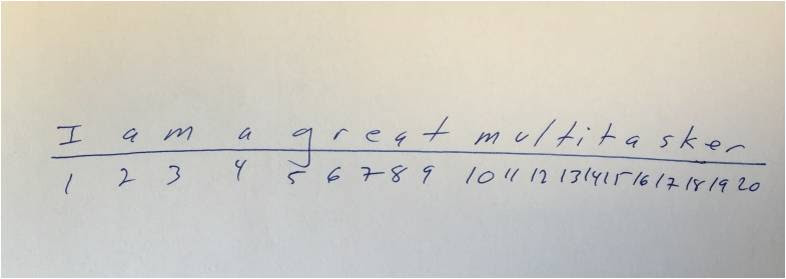 I am a great multitasker
1 2 3 4 5 6 7 8 9 10 11 12 13 14 15 16 17 18 19 20